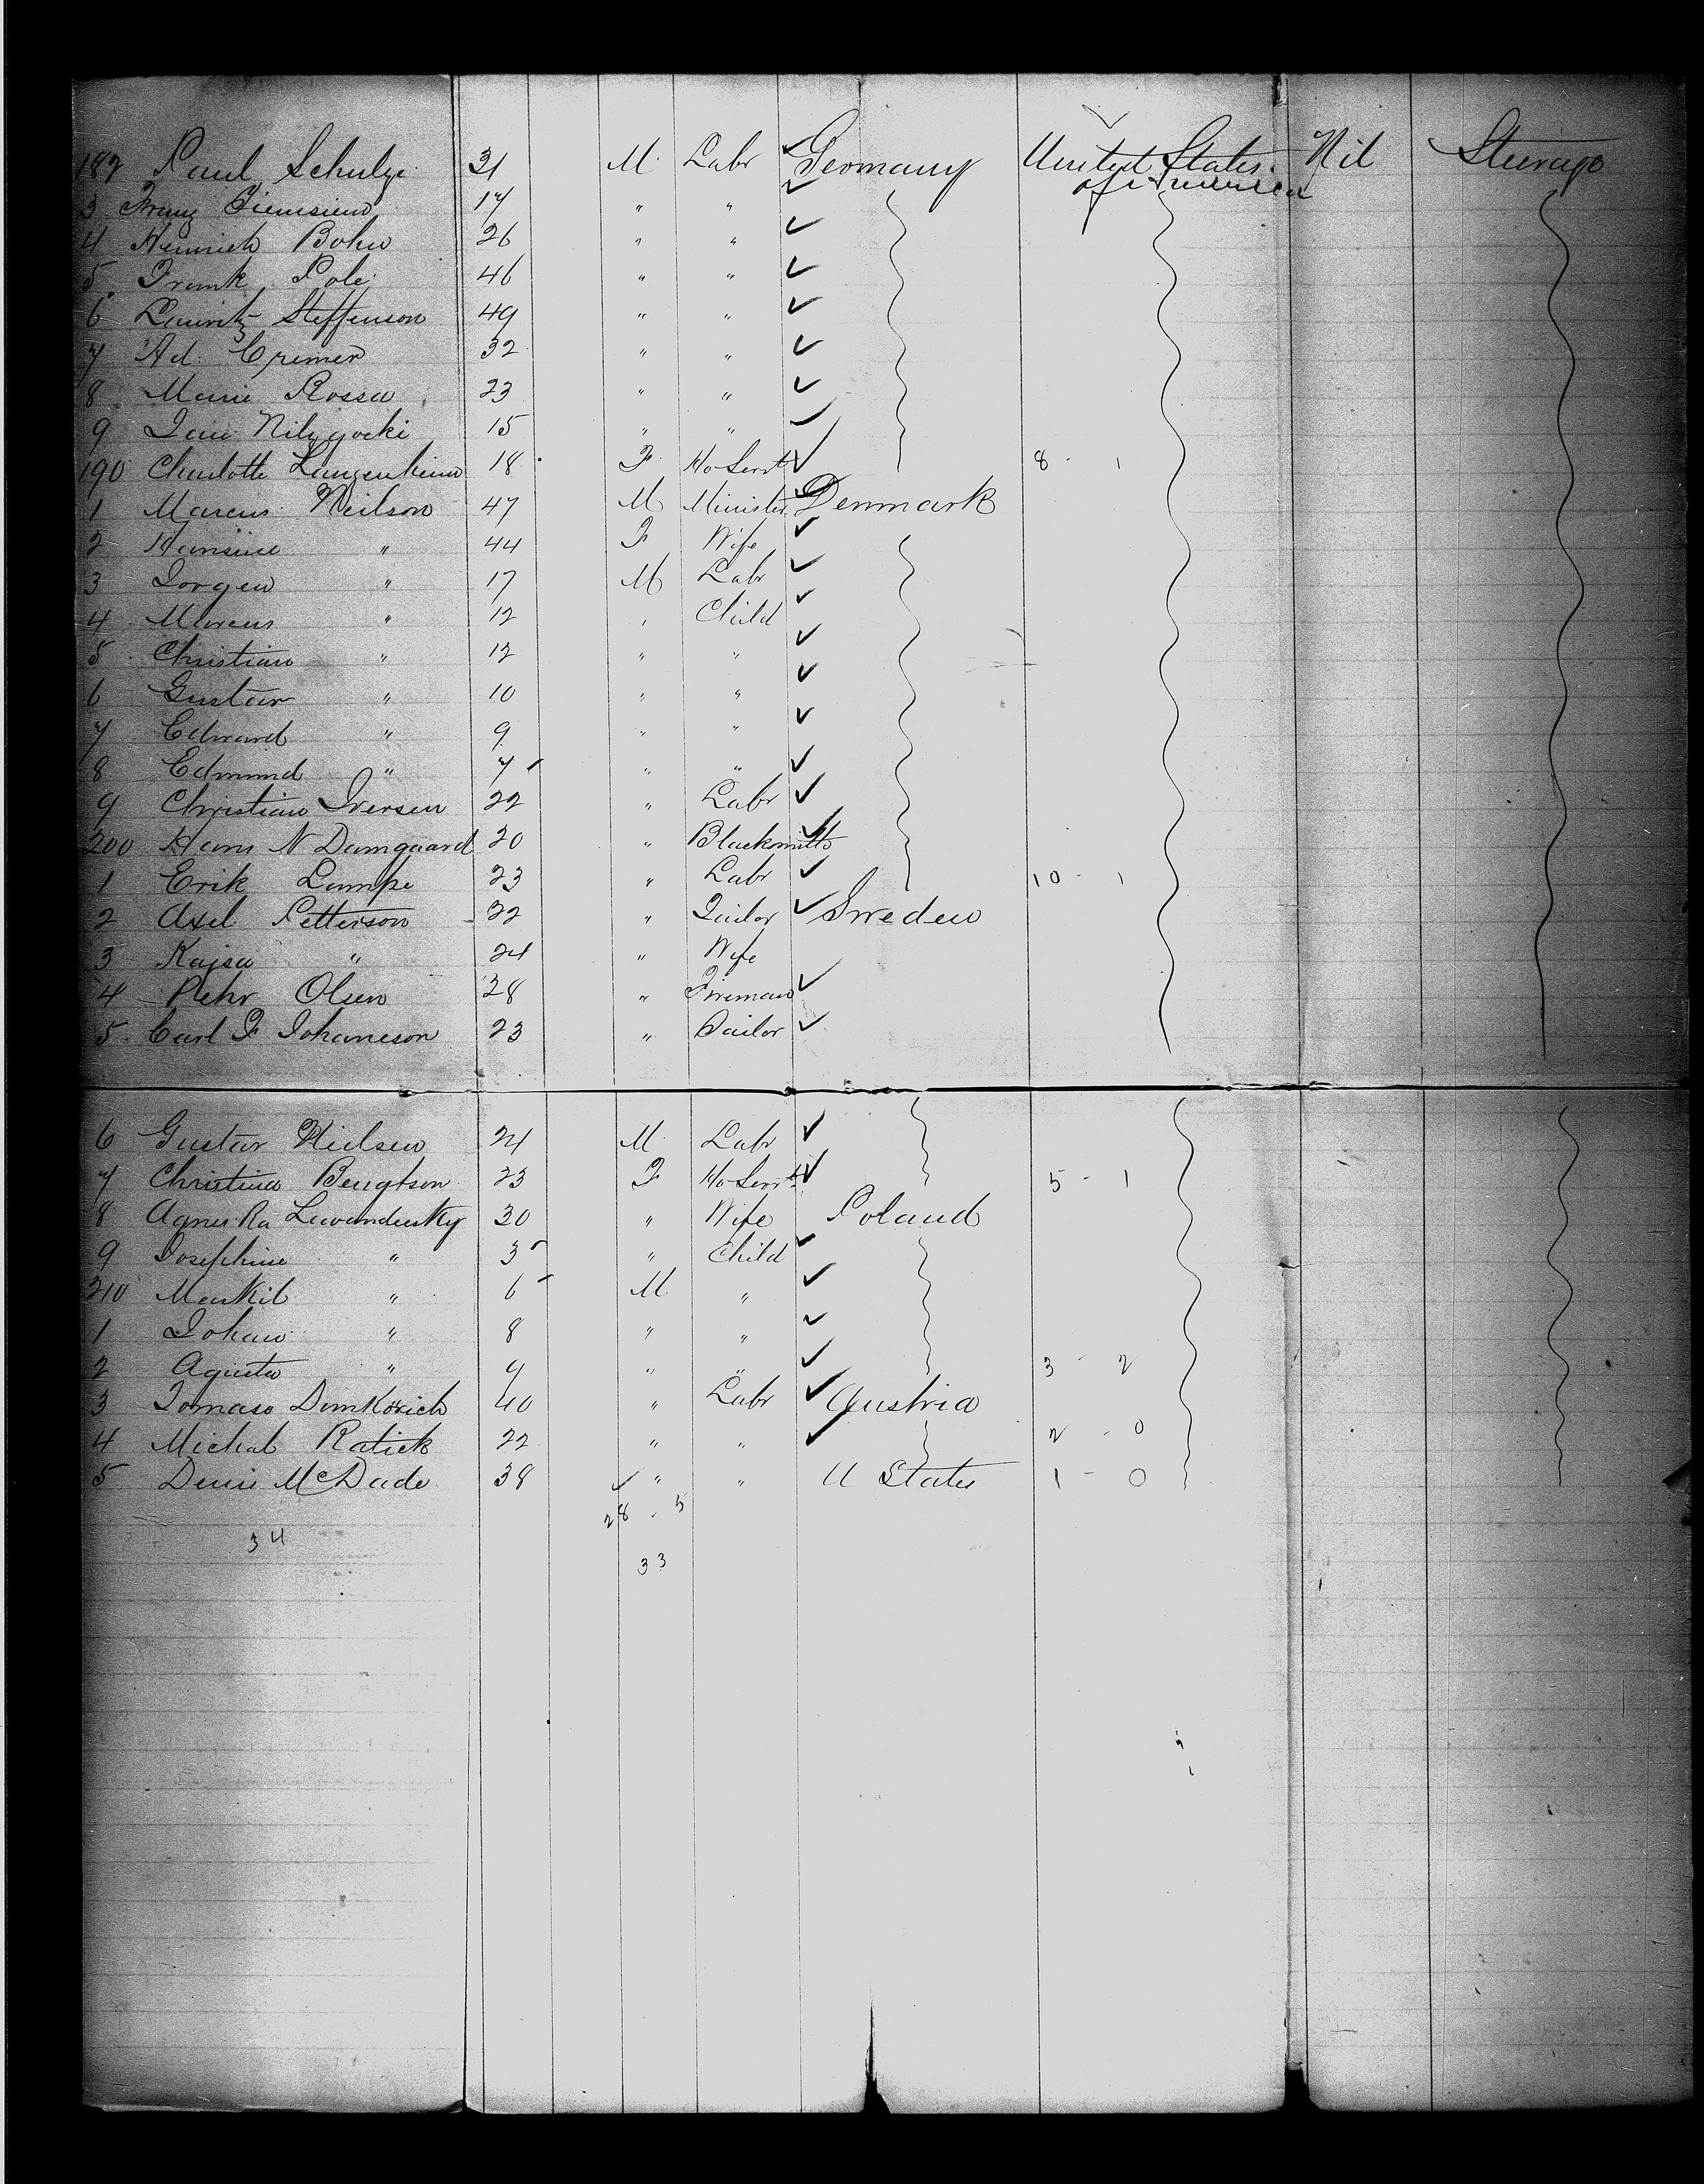 182 Paul Schulze 31 M. Labr Germany United States of America Nil Steerage
3 Franz 17 " "
4 Heinrich Bohn 26 " "
5 Frank Pole 46 " "
6 Lauritz Steffenson 49 " "
7 Ad. Cremer 32 " "
8 Marie Rossa 23 " "
9 Jan 15 " "
190 Charlotte Langenheim 18 F. Ho-Servt 8 - 1
1 Marcus Neilson 47 M Minister Denmark
2 Hansine " 44 F Wife
3 Jorgen " 17 M Labr
4 Marcus " 12 " Child
5 Christian " 12 " "
6 Gustav " 10 " "
7 Edward " 9 " "
8 Edmund " 7 " "
9 Christian Iversen 22 " Labr
200 Hans N Damgaard 20 " Blacksmith
1 Erik Lampe 23 " Labr 10 - 1
2 Axel Petterson 32 " Tailor Sweden
3 Kajsa " 24 " Wife
4 Pehr Olsen 28 " Fireman
5 Carl F Johaneson 23 " Sailor
6 Gustav Nielsen 24 M. Labr
7 Christina Bengtson 23 F Ho-Servt 5 - 1
8 30 " Wife Poland
9 Josephine " 3 " Child
210 " 6 M "
1 Johan " 8 " "
2 Agusta " 9 " " 3 - 2
3 Tomaso Dimkovich 40 " Labr Austria
4 Michal Ratick 22 " " 2 - 0
5 Denis McDade 38 " " U States 1 - 0
28 - 5
34
33